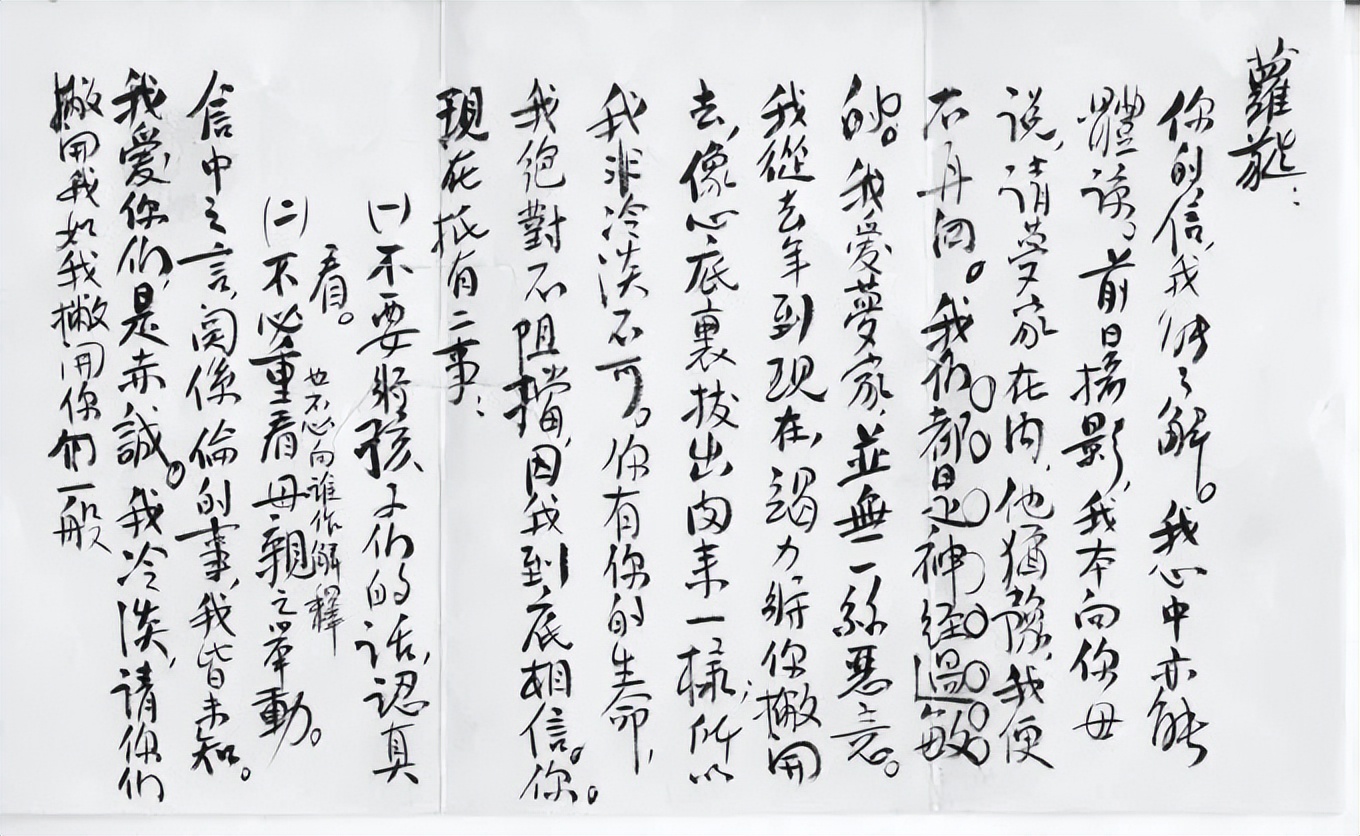 蘿蕤：
你的信，我能了解。我心中亦能
體諒。前日攝影，我本向你母
說，請夢家在內，他猶豫，我便
不再問。我們都是神經過敏
的。我愛夢家，並無一絲惡意。
我從去年到現在，竭力將你撇開
去，像心底裏拔出肉來一樣；所以
我非冷淡不可。你有你的生命，
我絕對不阻擋，因我到底相信你。
現在祇有二事：
(一)不要將孩子們的話，認真
看。
(二)不必重看母親之舉動。
也不必向誰作解釋
信中之言，關係倫的事，我皆未知。
我愛你們，是赤誠。我冷淡，請你們
撇開我如我撇開你們一般